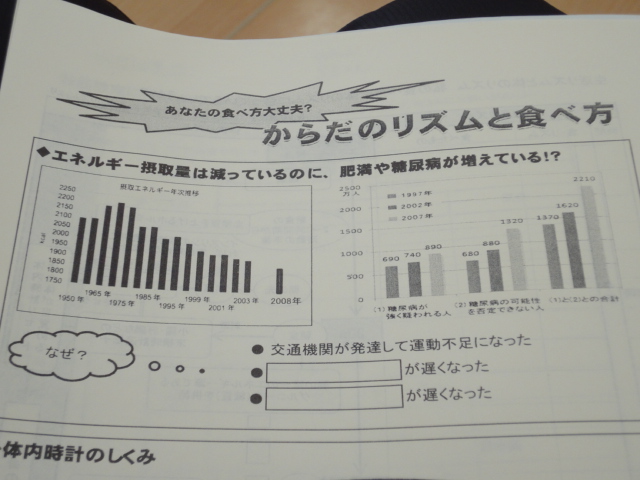 あなたの食べ方大丈夫?
からだのリズムと食べ方
◆エネルギー摂取量は減っているのに、肥満や糖尿病が増えている!?
摂取エネルギー年次推移
2250
2200
2150
2100
2050
2000
1950
1900
1850
1800
1750
kcal
1950年
1965年
1975年
1985年
1995年
1999年
2001年
2003年
2008年
2500
万人
2000
1500
1000
500
0
1997年
2002年
2007年
690 740 890
680 880 1320
1370 1620 2210
(1)糖尿病が
強く疑われる人
(2)糖尿病の可能性
を否定できない人
(1)と(2)との合計
なぜ?
●交通機関が発達して運動不足になった
● が遅くなった
● が遅くなった
体内時計のしくみ